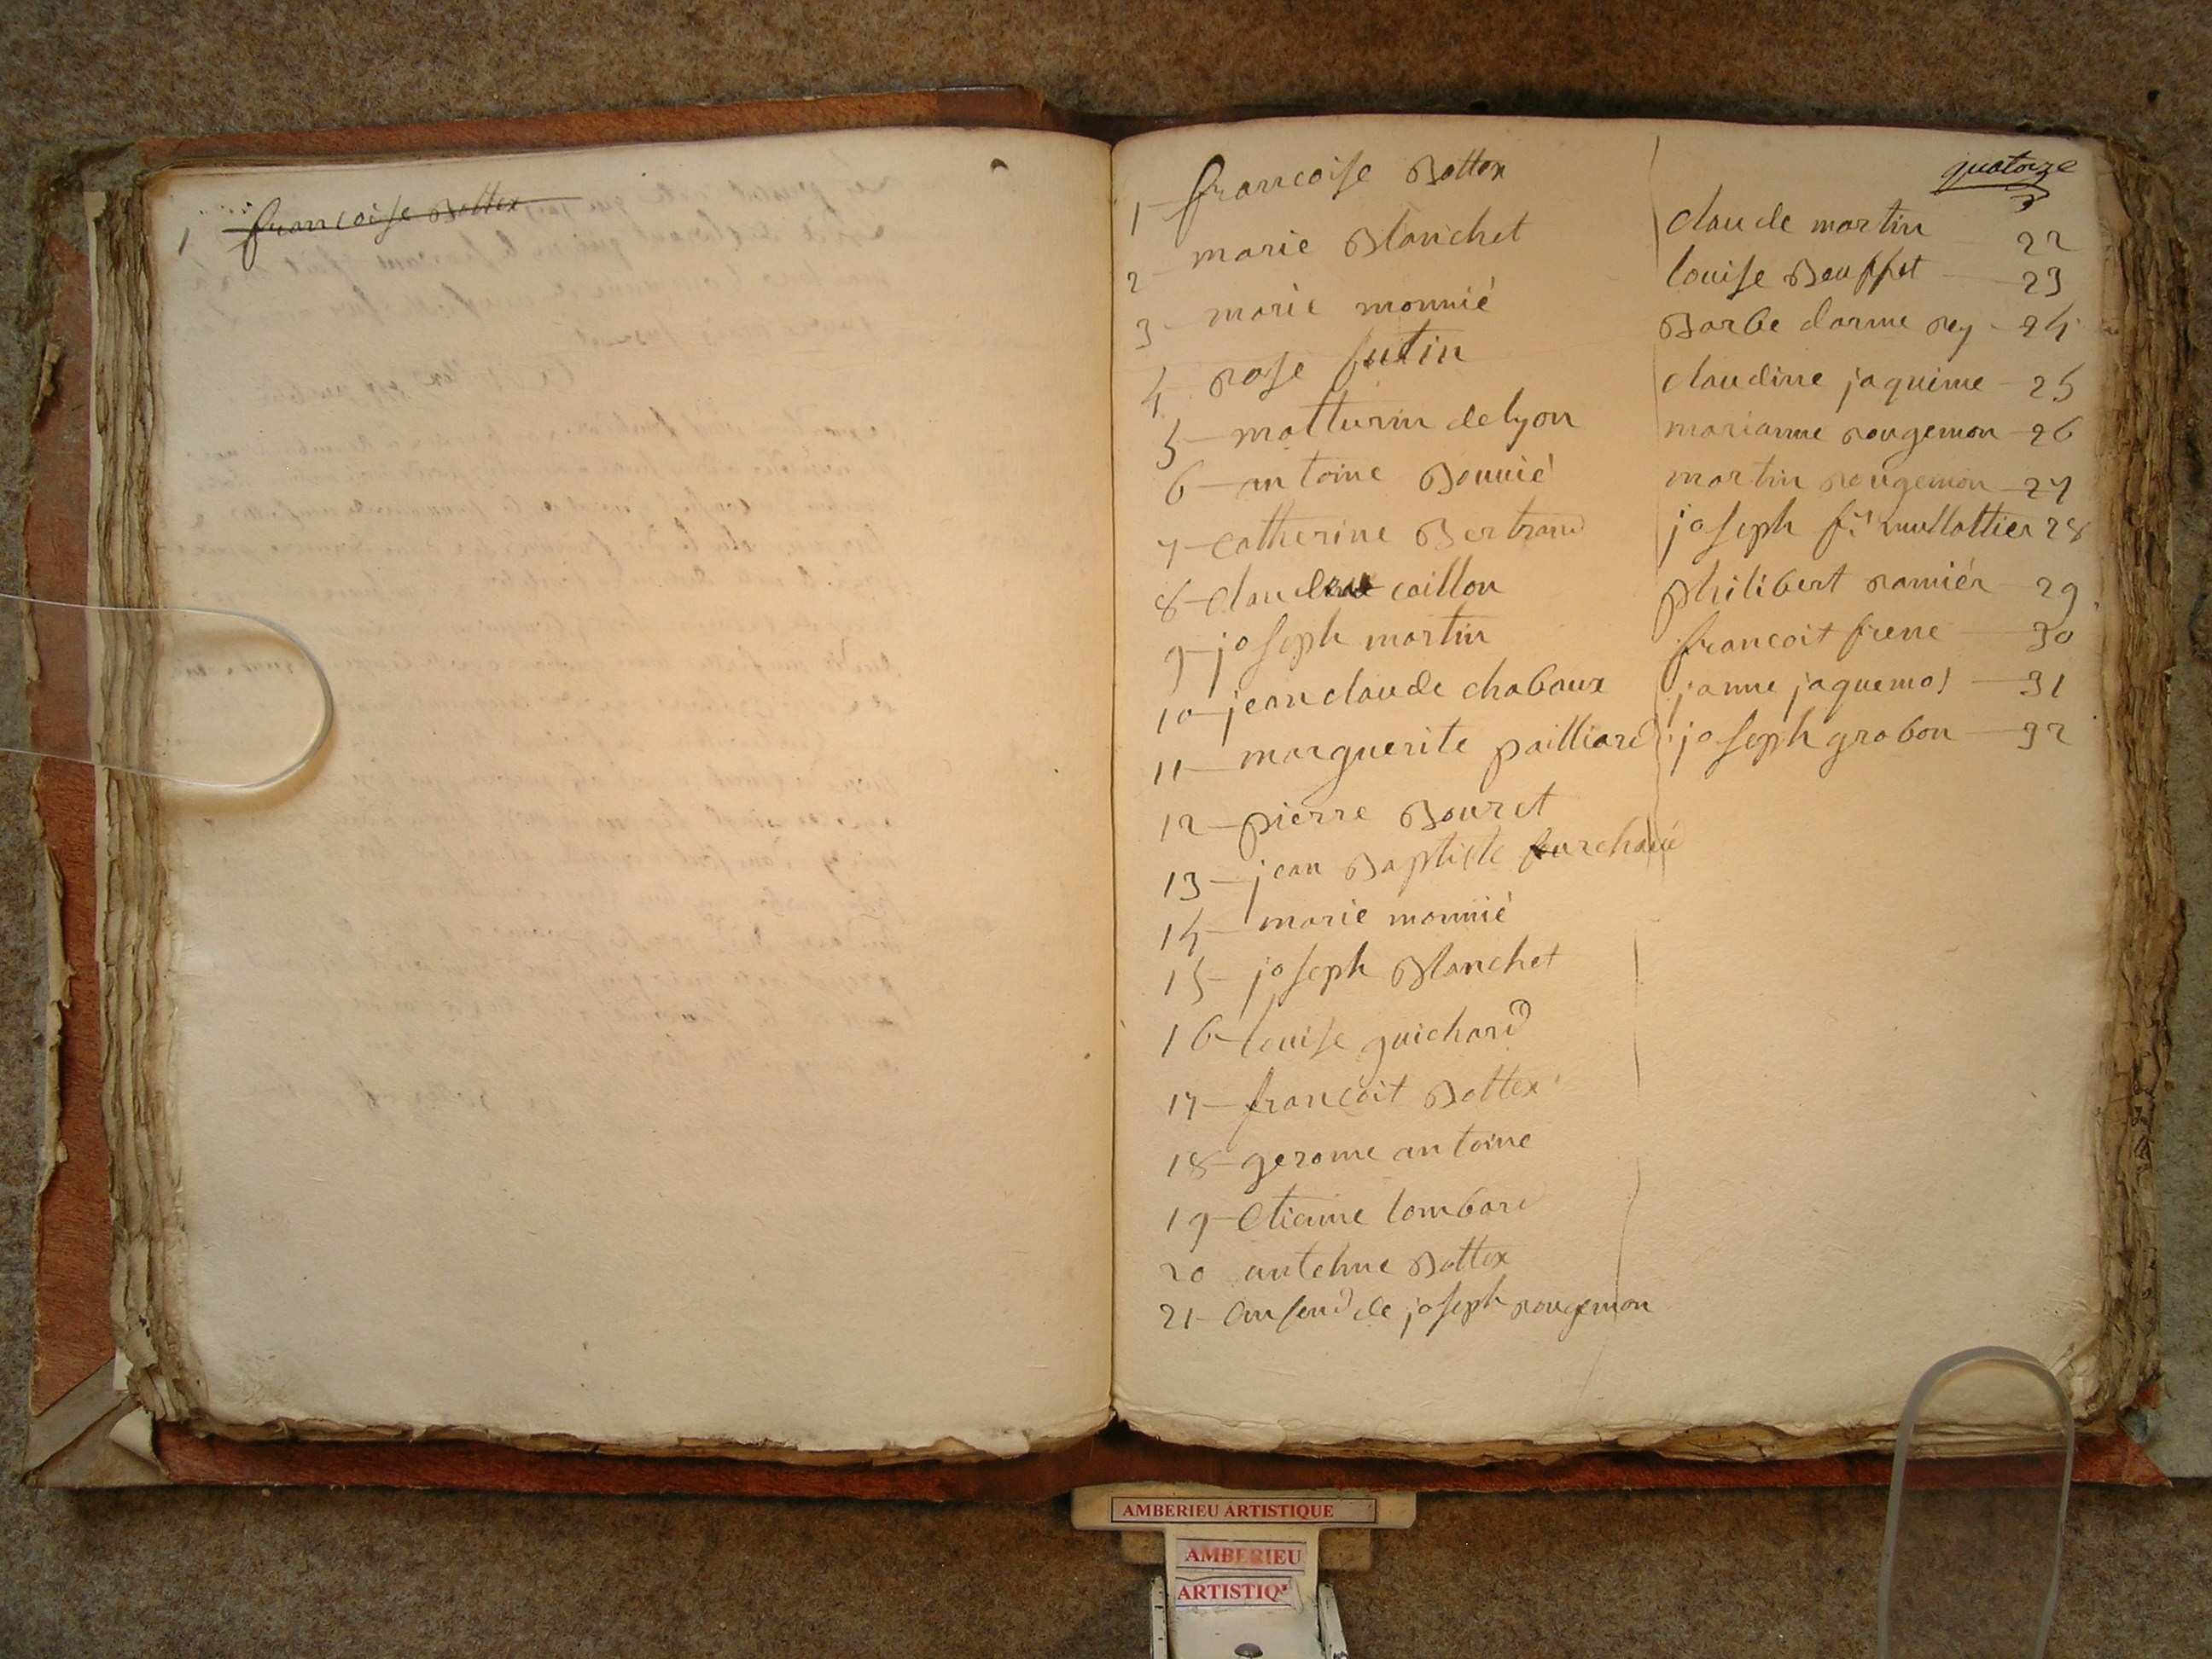 1 francoise Bottex
quatorze
1 francoise Bottex
2 marie Blanchet
3 marie monnié
4 rose futin
5 matturin delyon
6 antoine Bonnié
7 catherine Bertrand
8 caillon
9 joseph martin
10 jean claude chabaux
11 marguerite pailliard
12 pierre Bouret
13 jean Baptiste
14 marie monnié
15 joseph Blanchet
16 louise guichard
17 francoit Bottex
18 gerome antoine
19 etienne lombard
20 antelme Bottex
21 de joseph rougemon
claude martin 22
louise Bouffet 23
Barbe darme rey 24
claudine jaquime 25
marianne rougemon 26
martin rougemon 27
joseph 28
philibert ramiér 29
francoit frene 30
janne jaquemos 31
joseph grabon 32
AMBERIEU ARTISTIQUE
AMBERIEU
ARTISTIQ